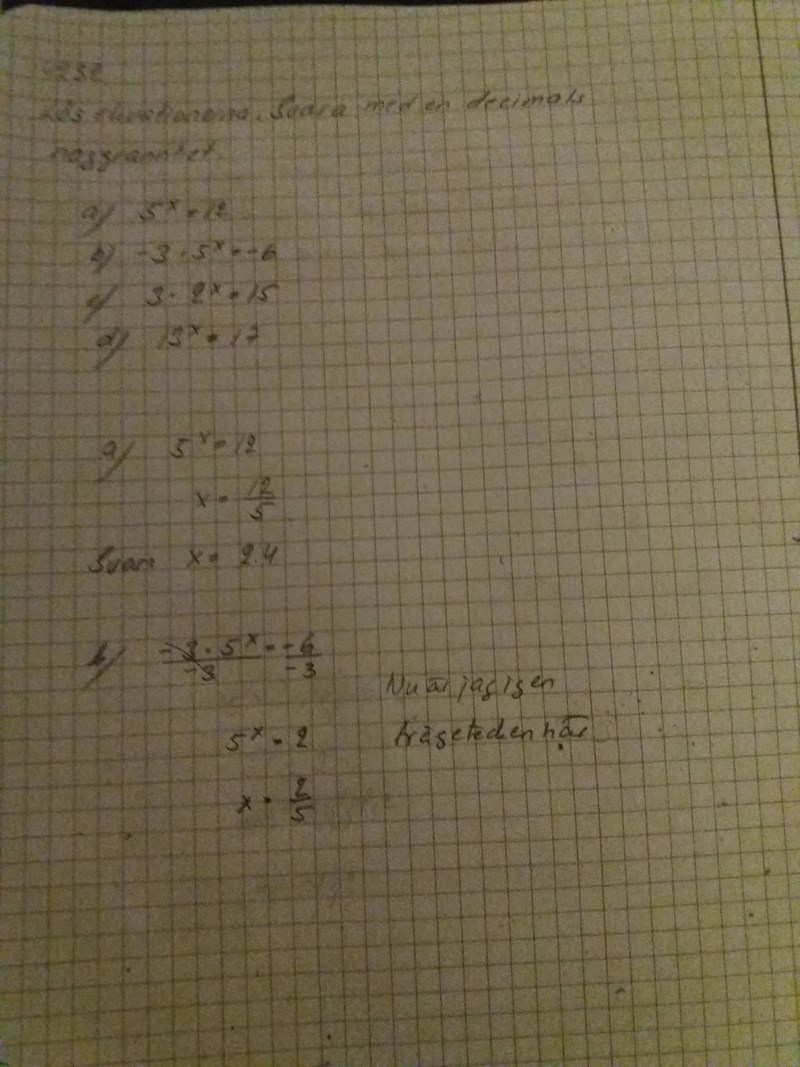 4232
Lös ekvationerna. Svara med en decimals
noggrannhet.
a) 5ˣ = 12
b) -3 · 5ˣ = -6
c) 3 · 2ˣ = 15
d) 13ˣ = 17
a) 5ˣ = 12
x = 12/5
Svar: x = 2.4
b) -3 · 5ˣ/-3 = -6/-3
Nu är jag igen
5ˣ = 2 frågetecken här
x = 2/5